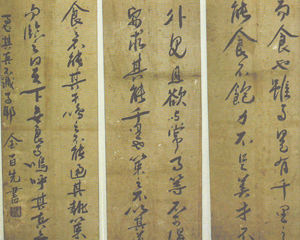 而食也雖有千里之
能食不飽力不足美才不
外見且欲與常馬等不可得
安求其能千里也策之不以其
食之不能其鳴之不能通其執策
而臨之曰天下無良馬嗚呼其真無
馬其真不識馬耶 百先書